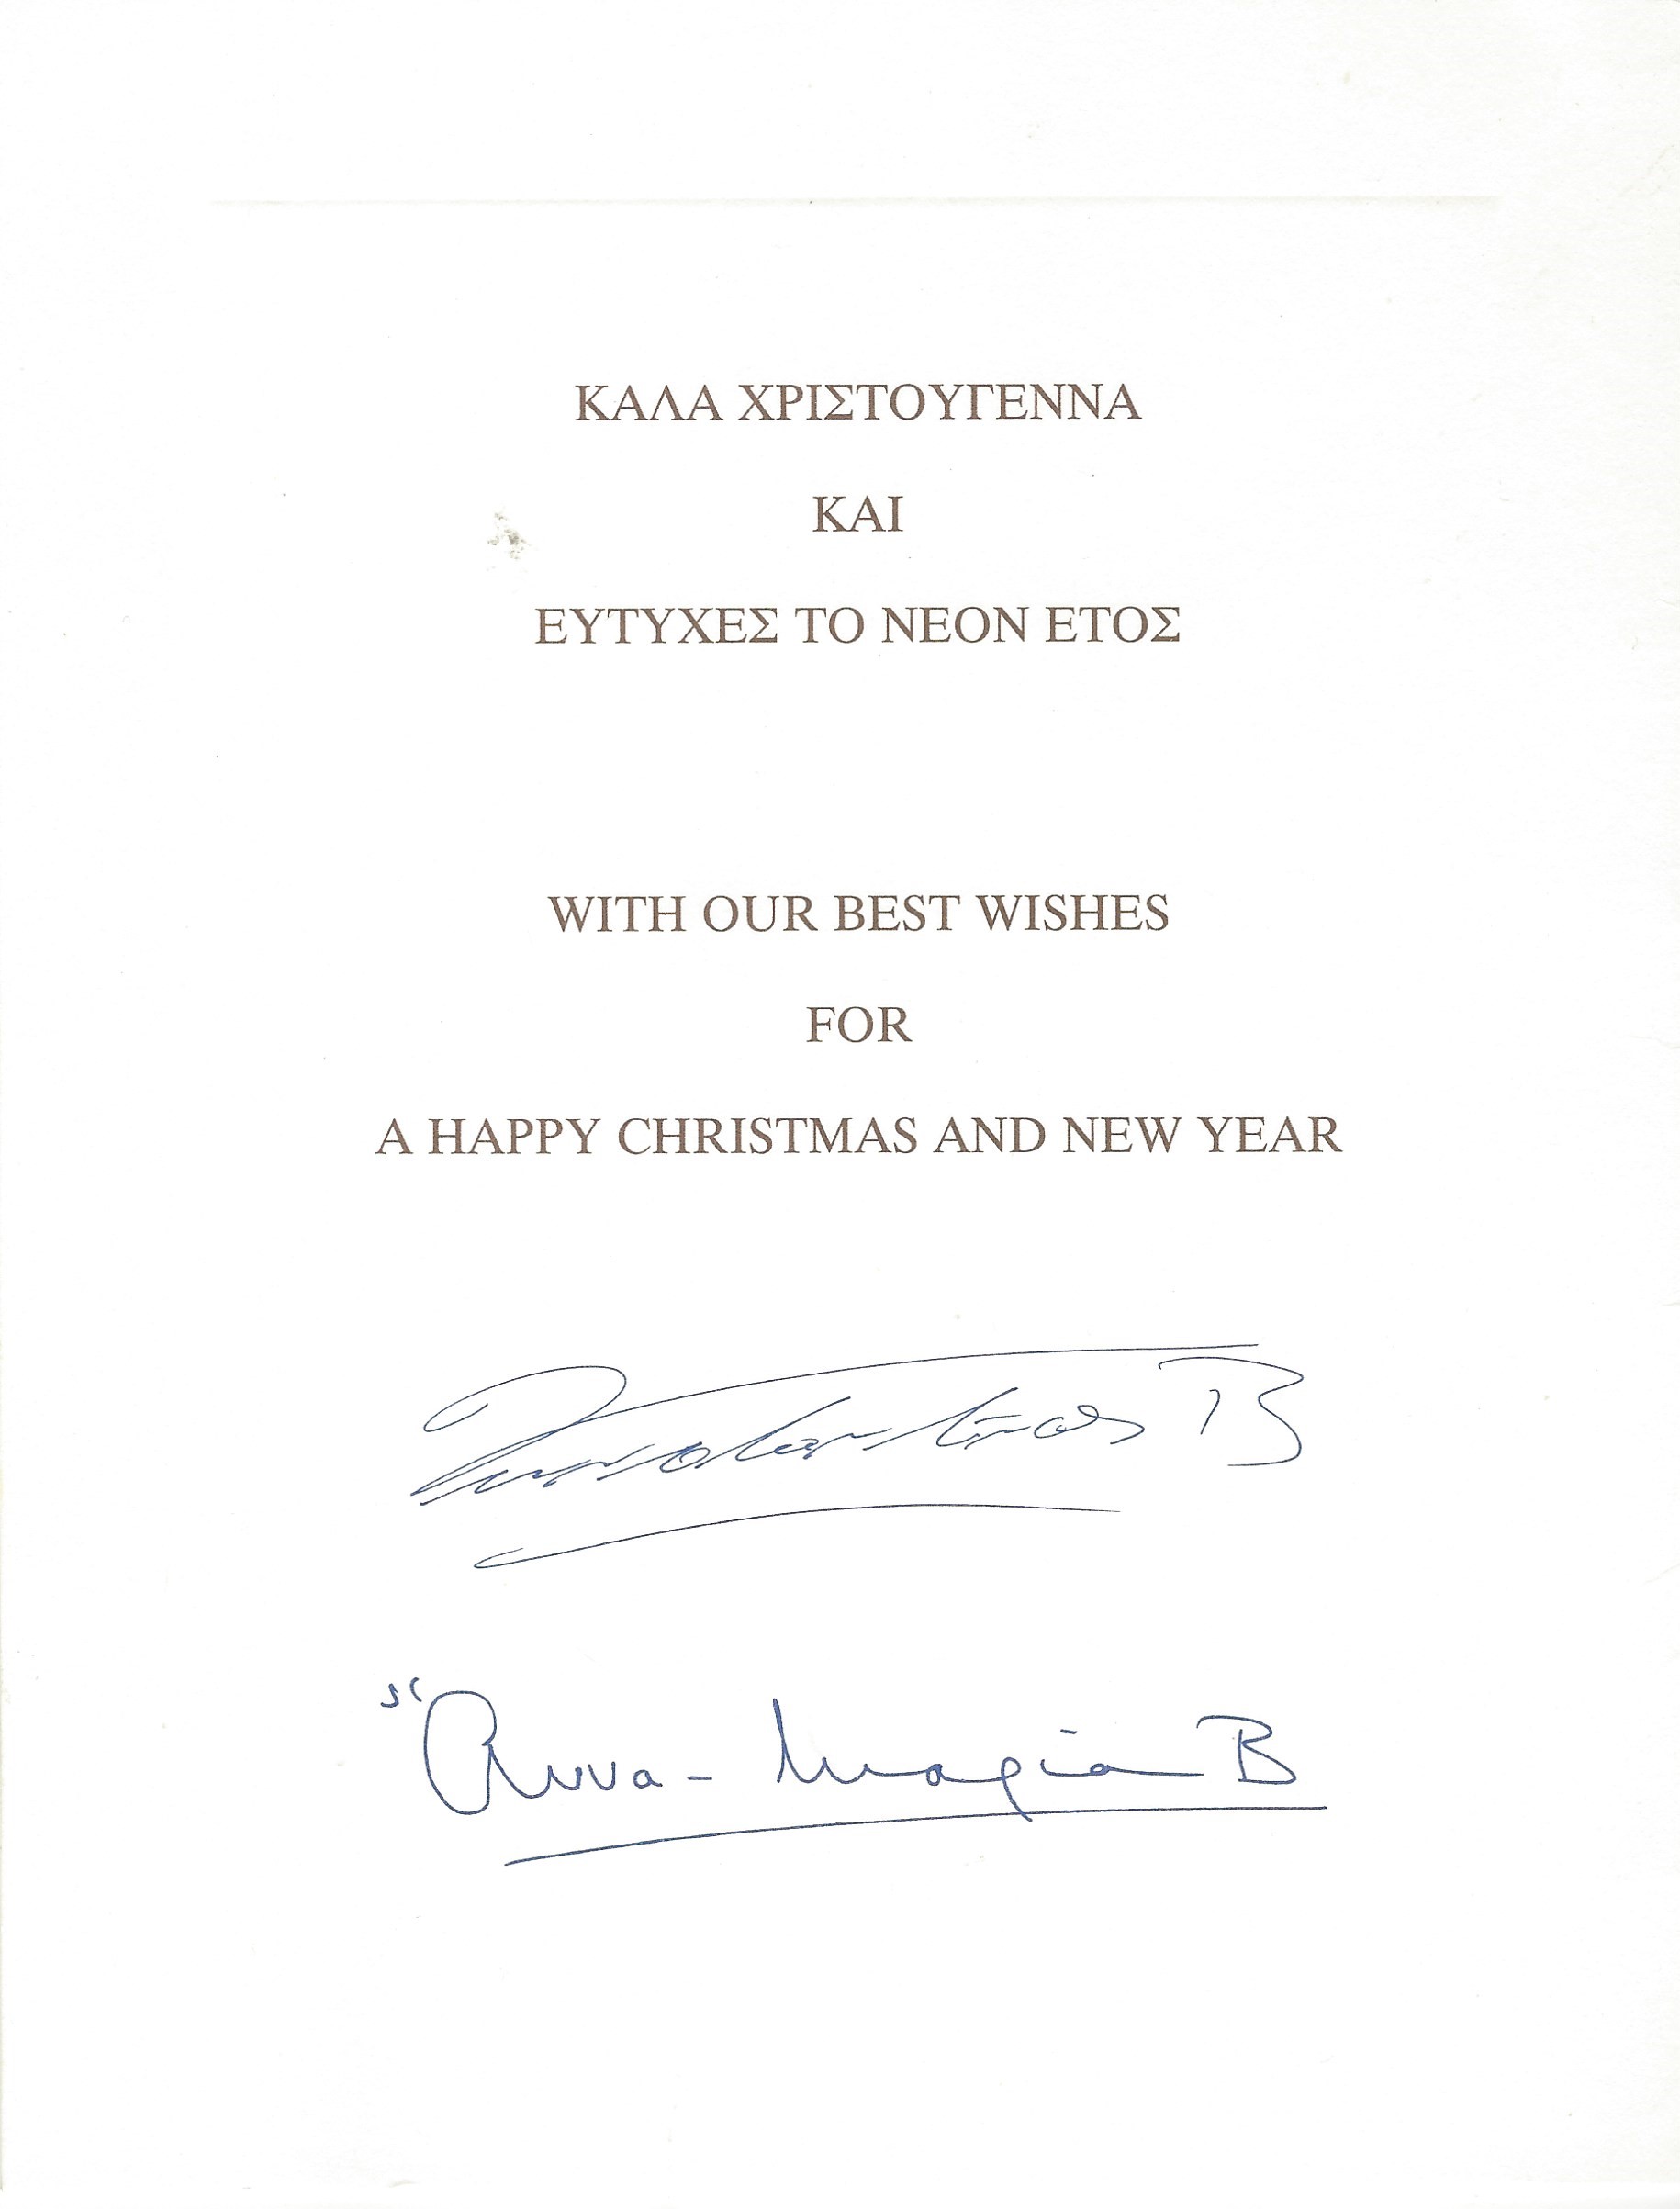 ΚΑΛΑ ΧΡΙΣΤΟΥΓΕΝΝΑ
ΚΑΙ
ΕΥΤΥΧΕΣ ΤΟ ΝΕΟΝ ΕΤΟΣ
WITH OUR BEST WISHES
FOR
A HAPPY CHRISTMAS AND NEW YEAR
Κωνσταντῖνος Β
Ἄννα - Μαρία Β